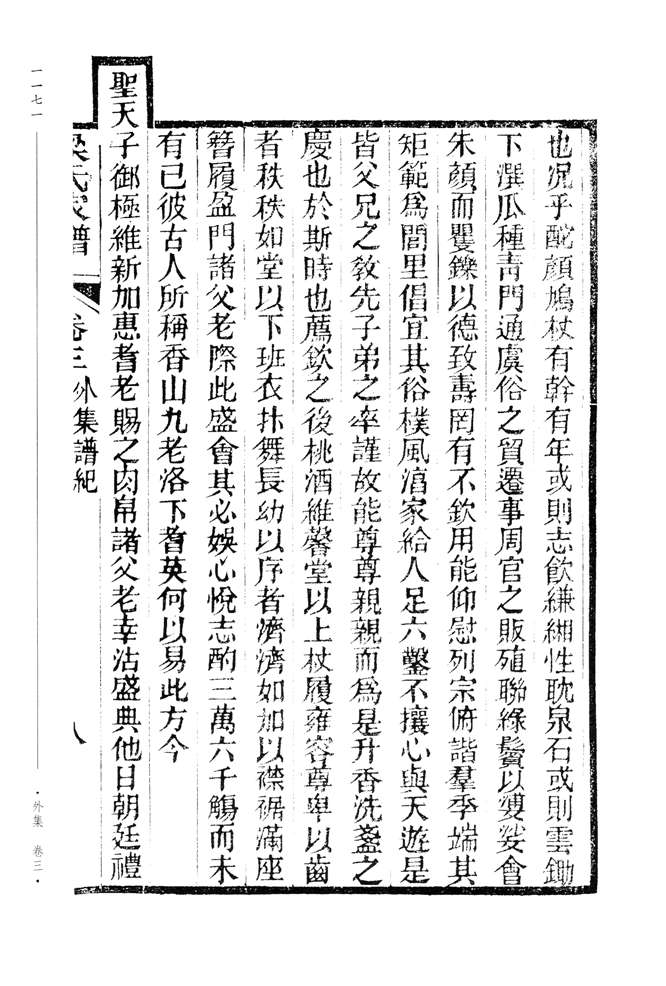 也况乎酡顏鳩杖有幹有年或則志飲縑緗性耽泉石或則雲鋤
下潠瓜種靑門通虞俗之貿遷事周官之販殖聯綠鬢以婆娑會
朱顏而矍鑠以德致壽罔有不欽用能仰慰列宗俯諧羣季端其
矩範爲閭里倡宜其俗樸風湻家給人足六鑿不攘心與天遊是
皆父兄之敎先子弟之率謹故能尊尊親親而爲是升香洗盞之
慶也於斯時也薦歆之後桃酒維馨堂以上杖履雍容尊卑以齒
者秩秩如堂以下班衣抃舞長幼以序者濟濟如加以襟裾滿座
簪履盈門諸父老際此盛會其必娛心悅志酌三萬六千觴而未
有已彼古人所稱香山九老洛下耆英何以易此方今
聖天子御極維新加惠耆老賜之肉帛諸父老幸沾盛典他日朝廷禮
梁氏家譜 卷三 外集譜紀 八
一一七一
·外集 卷三·